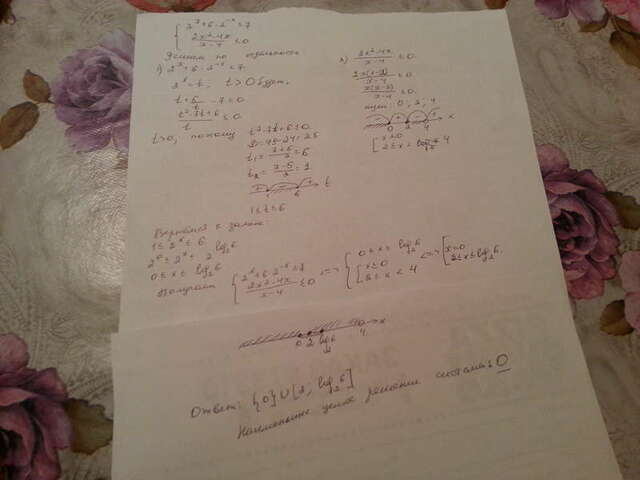 2^x + 6·2^-x ≤ 7
(2x²-4x)/(x-4) ≤ 0
Решим по
1) 2^x + 6·2^-x ≤ 7
2^x = t, t > 0 будет.
t + 6/t - 7 ≤ 0
(t²-7t+6)/t ≤ 0
t>0, поэтому t²-7t+6≤0
D = 49-24=25
t₁ = (7+5)/2 = 6
t₂ = (7-5)/2 = 1
1 6 t
1≤t≤6
2) (2x²-4x)/(x-4) ≤ 0
2x(x-2)/(x-4) ≤ 0
x(x-2)/(x-4) ≤ 0
нули: 0, 2, 4
0 2 4 x
x≤0
2≤x< 4
Вернёмся к замене:
1≤ 2^x ≤ 6
2^0 ≤ 2^x ≤ 2 log₂6
0 ≤ x ≤ log₂6
Получаем
2^x+6·2^-x ≤ 7
(2x²-4x)/(x-4) ≤ 0
<=>
0 ≤ x ≤ log₂6
x≤0
2≤x < 4
<=>
x=0
2≤x≤log₂6.
0 2 log₂6 4 x
Ответ: {0}∪[2, log₂6]
Наименьшее целое решение системы: 0